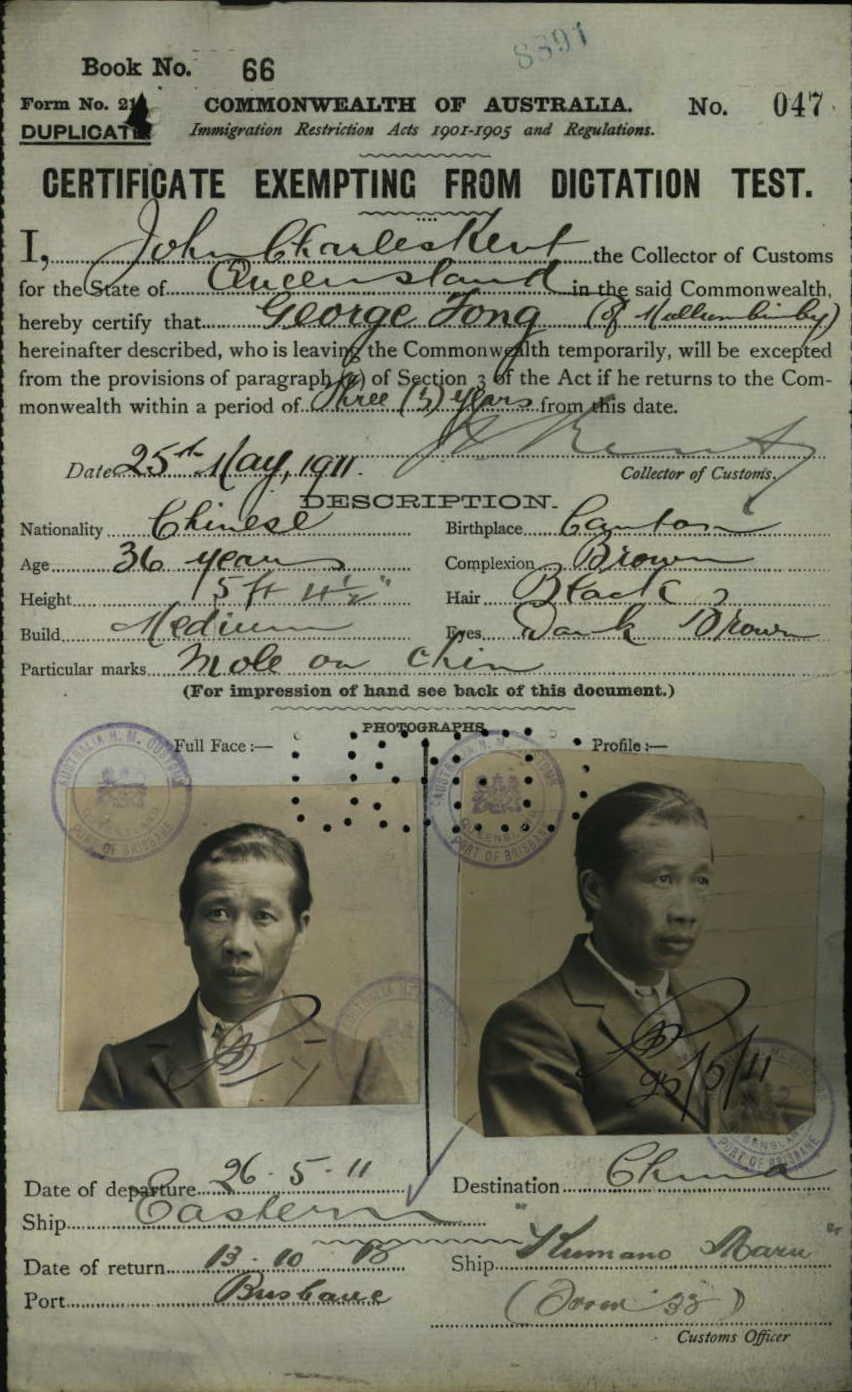 8391
Book No. 66
Form No. 21
COMMONWEALTH OF AUSTRALIA. No. 047
DUPLICATE Immigration Restriction Acts 1901-1905 and Regulations.
CERTIFICATE EXEMPTING FROM DICTATION TEST.
I, John Charles Kent the Collector of Customs
for the State of Queensland in the said Commonwealth,
hereby certify that George Fong (of Mullumbimby)
hereinafter described, who is leaving the Commonwealth temporarily, will be excepted
from the provisions of paragraph (a) of Section 3 of the Act if he returns to the Com-
monwealth within a period of Three (3) years from this date.
Date 25th May, 1911.
Collector of Customs.
DESCRIPTION.
Nationality Chinese Birthplace Canton
Age 36 years Complexion Brown
Height 5 ft 4½" Hair Black
Build Medium Eyes Dark Brown
Particular marks Mole on chin
(For impression of hand see back of this document.)
PHOTOGRAPHS.
Full Face :— Profile :—
AUSTRALIA H. M. CUSTOMS
QUEENSLAND
PORT OF BRISBANE
AUSTRALIA H. M. CUSTOMS
QUEENSLAND
PORT OF BRISBANE
25/5/11
QUEENSLAND
PORT OF BRISBANE
Date of departure 26-5-11 Destination China
Ship Eastern
Date of return 13-10-13 Ship "Kumano Maru"
Port Brisbane (Form 32)
Customs Officer